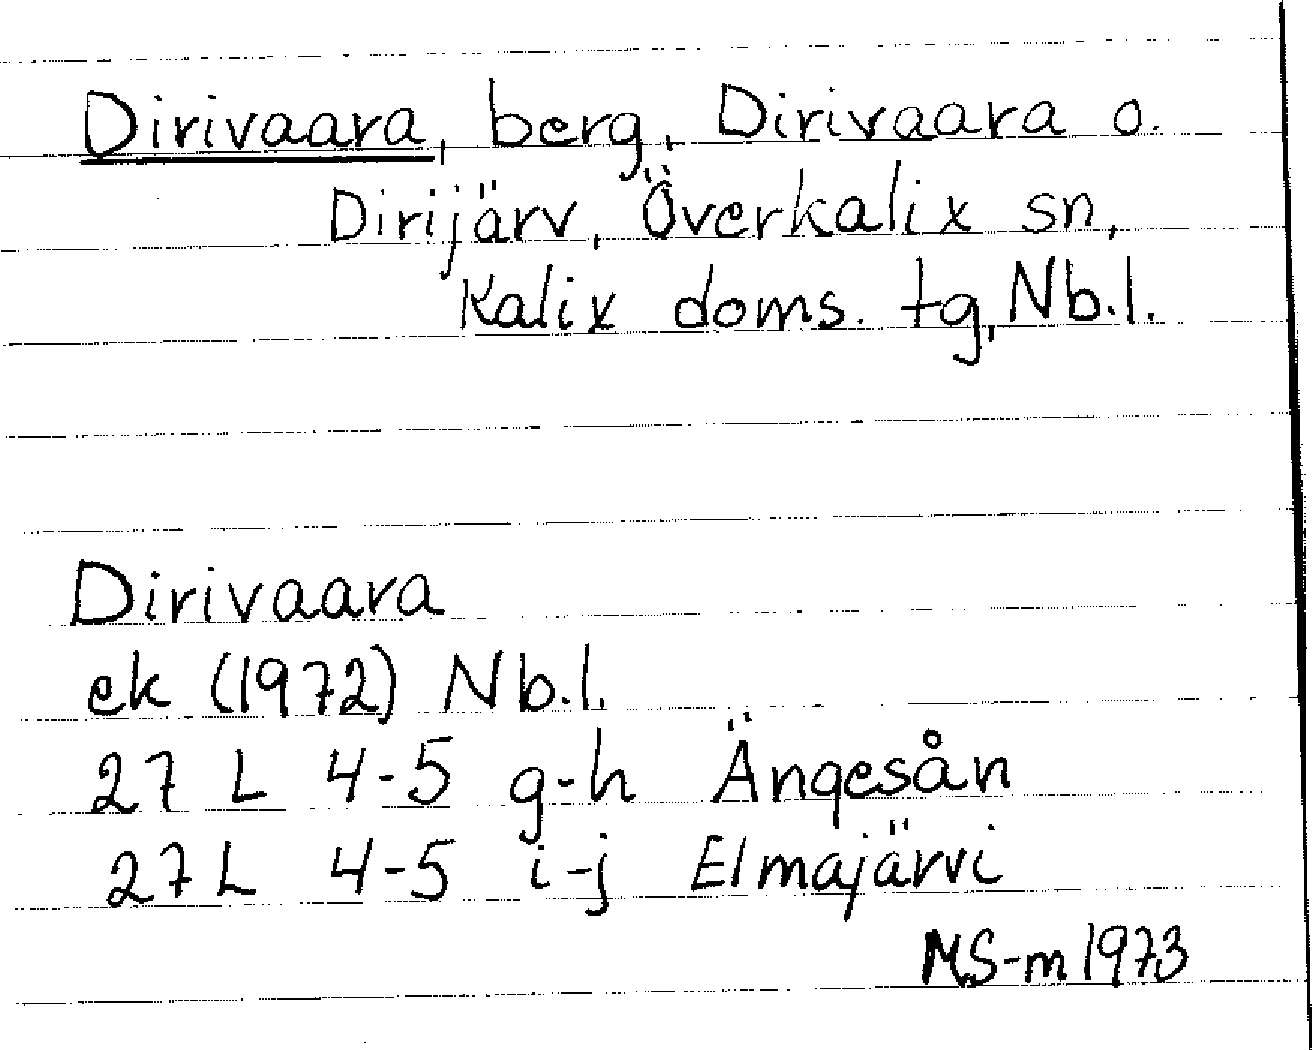 Dirivaara, berg, Dirivaara o.
Dirijärv, Överkalix sn,
Kalix doms. tg, Nb.l.
Dirivaara
ek (1972) Nb.l.
27 L 4-5 g-h Ängesån
27 L 4-5 i-j Elmajärvi
MS-m 1973